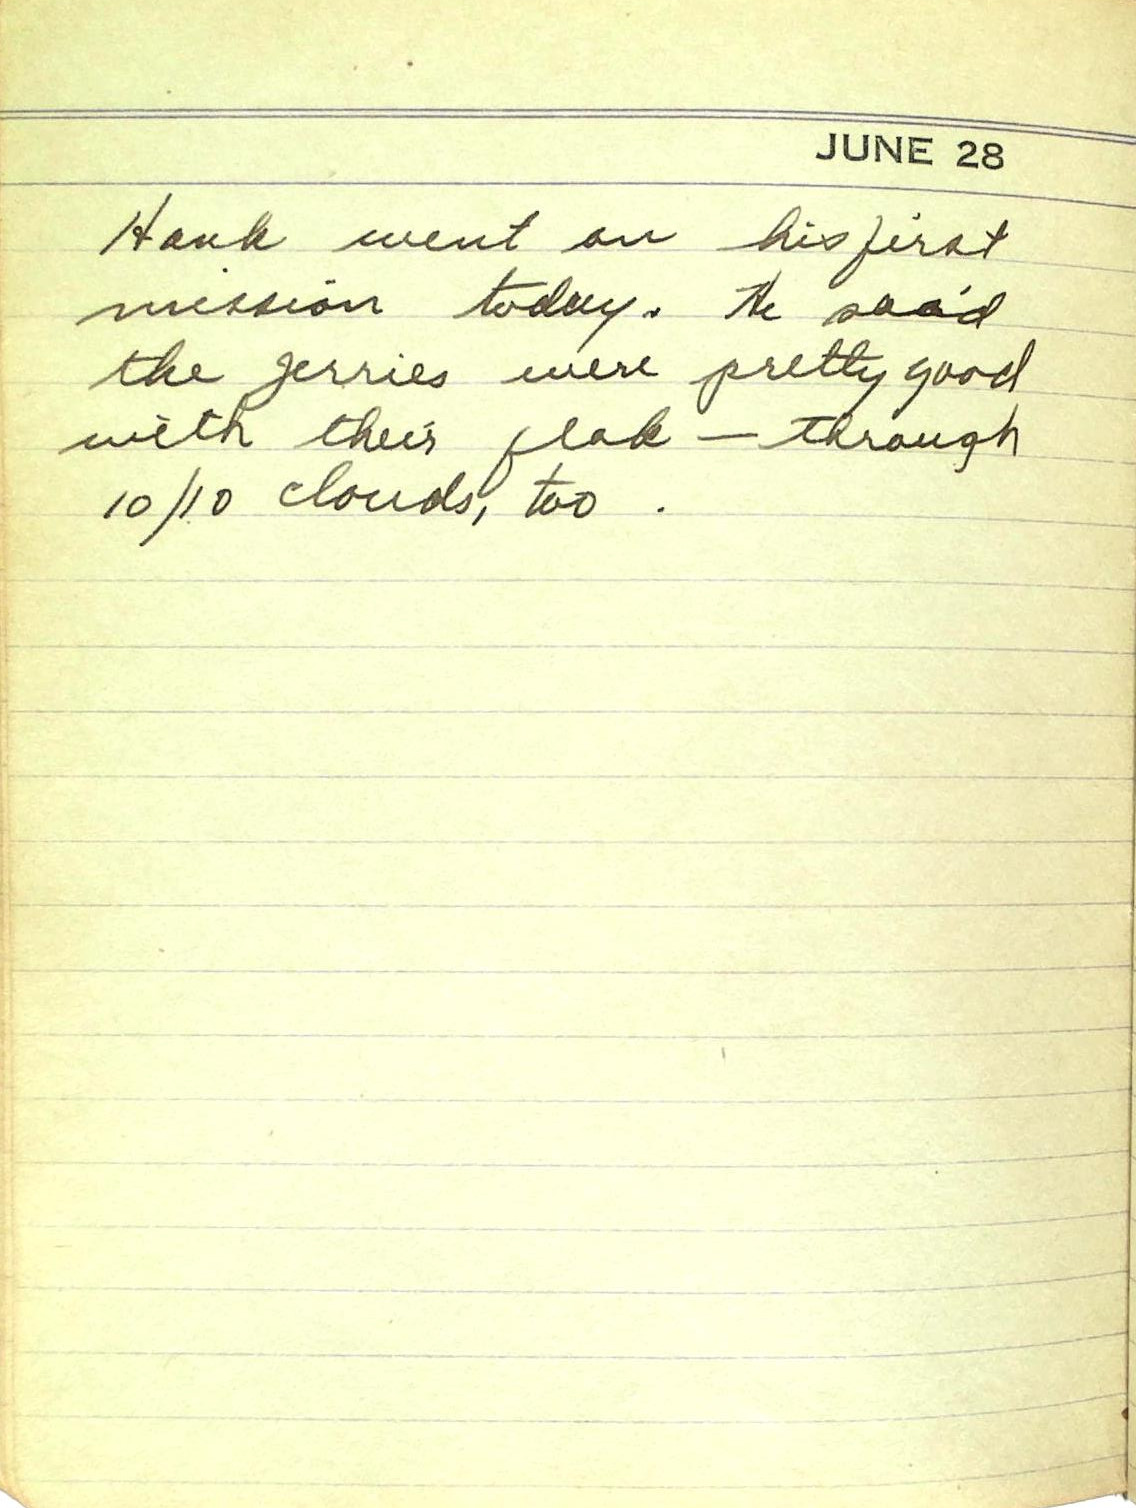 JUNE 28
Hank went on his first
mission today. He said
the Jerries were pretty good
with their flak — through
10/10 clouds, too .